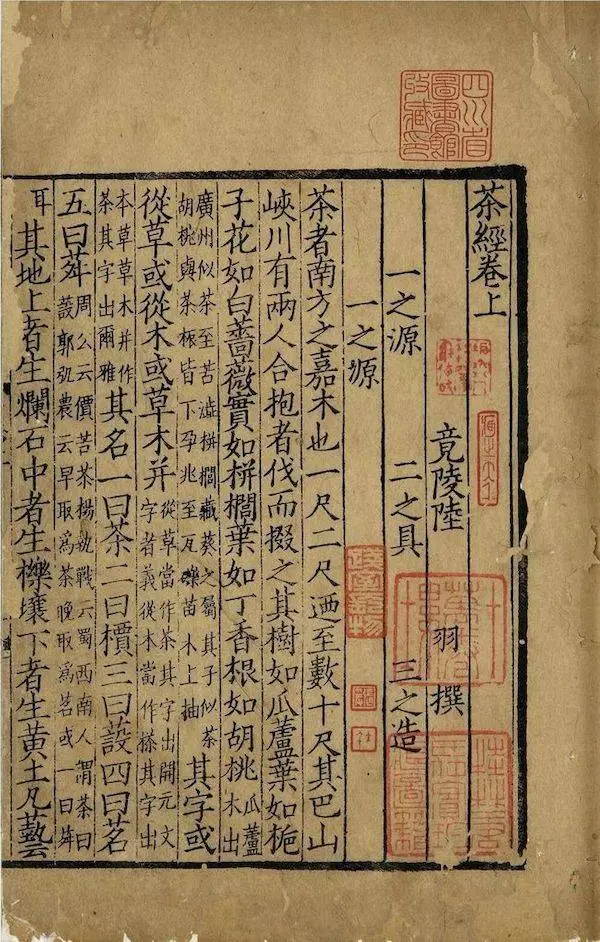 四川省
圖書館
收藏印
茶經卷上
竟陵陸 羽 撰
一之源 二之具 三之造
一之源
茶者南方之嘉木也一尺二尺廼至數十尺其巴山
峽川有兩人合抱者伐而掇之其樹如瓜蘆葉如梔
子花如白薔薇實如栟櫚葉如丁香根如胡桃 瓜蘆木出
廣州似茶至苦澁栟櫚藏葵之屬其子似茶胡桃與茶根皆下孕兆至瓦礫苗木上抽 其字或
從草或從木或草木并 從草當作茶其字出開元文字者義從木當作搽其字出
本草草木并作茶其字出爾雅 其名一曰茶二曰檟三曰設四曰茗
五曰荈 周公云價苦茶楊執戰云蜀西南人謂茶曰設郭弘農云早取爲茶晚取爲茗或一曰荈
耳 其地上者生爛石中者生櫟壤下者生黃土凡藝